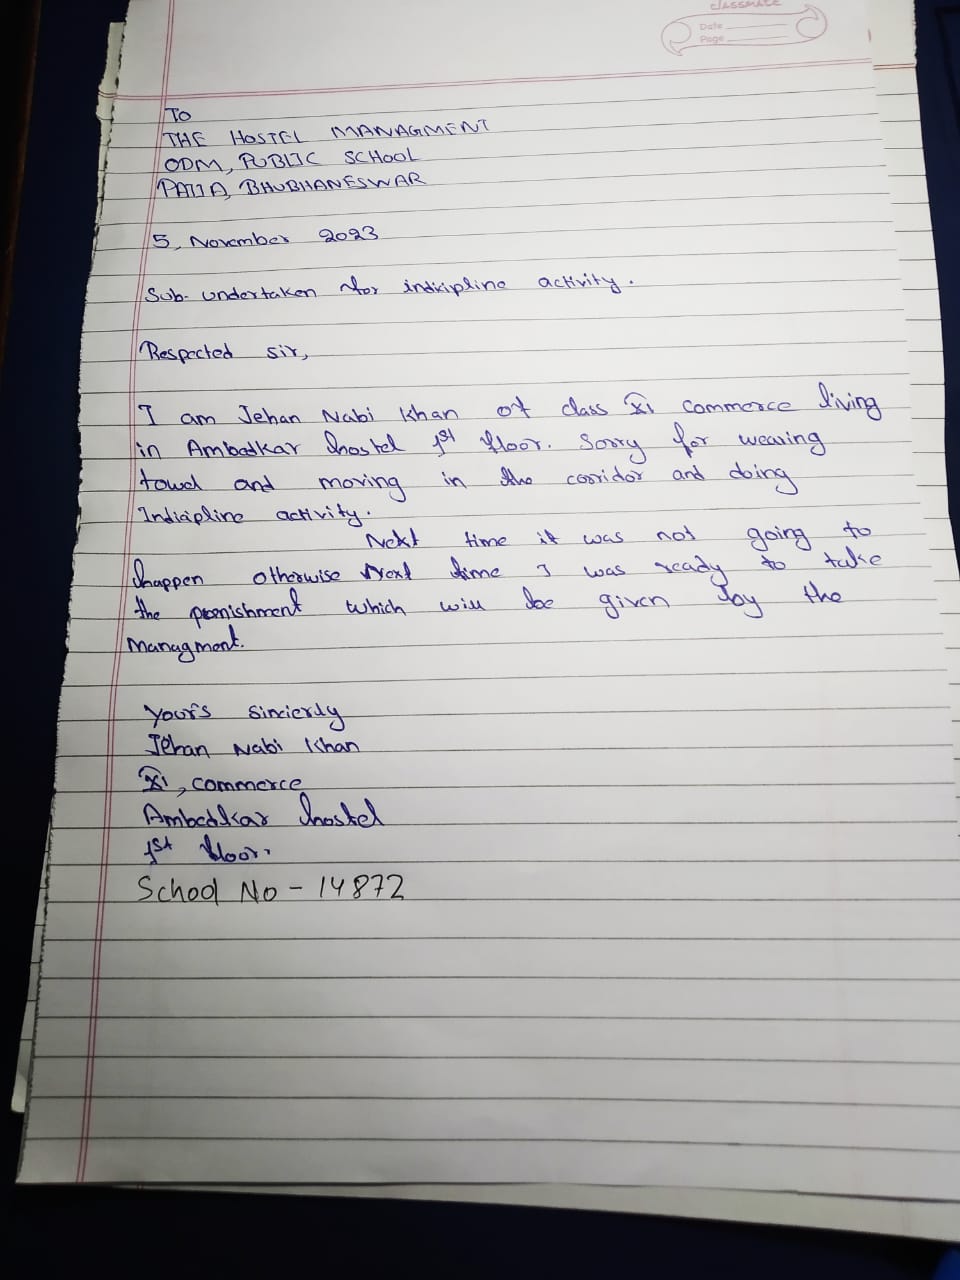 classmate
Date
Page
To
THE HOSTEL MANAGMENT
ODM, PUBLIC SCHOOL
PATIA, BHUBHANESWAR
5, November 2023
Sub- undertaken for indicipline activity.
Respected sir,
I am Jehan Nabi Khan of class XI commerce living
in Ambedkar hostel 1st floor. Sorry for wearing
towel and moving in the corridor and doing
Indicipline activity.
Next time it was not going to
happen otherwise Next time I was ready to take
the punishment which will be given by the
Managment.
Yours sincierly
Jehan Nabi Khan
XI, commerce
Ambedkar hostel
1st floor.
School No - 14872